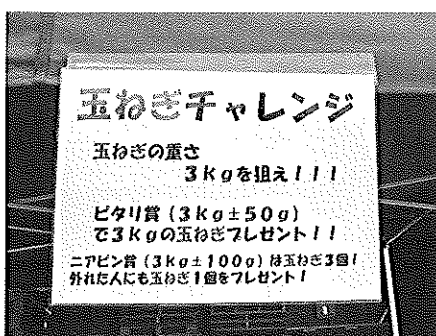 玉ねぎチャレンジ
玉ねぎの重さ
3kgを狙え!!!
ピタリ賞(3kg±50g)
で3kgの玉ねぎプレゼント!!
ニアピン賞(3kg±100g)は玉ねぎ3個!
外れた人にも玉ねぎ1個をプレゼント!